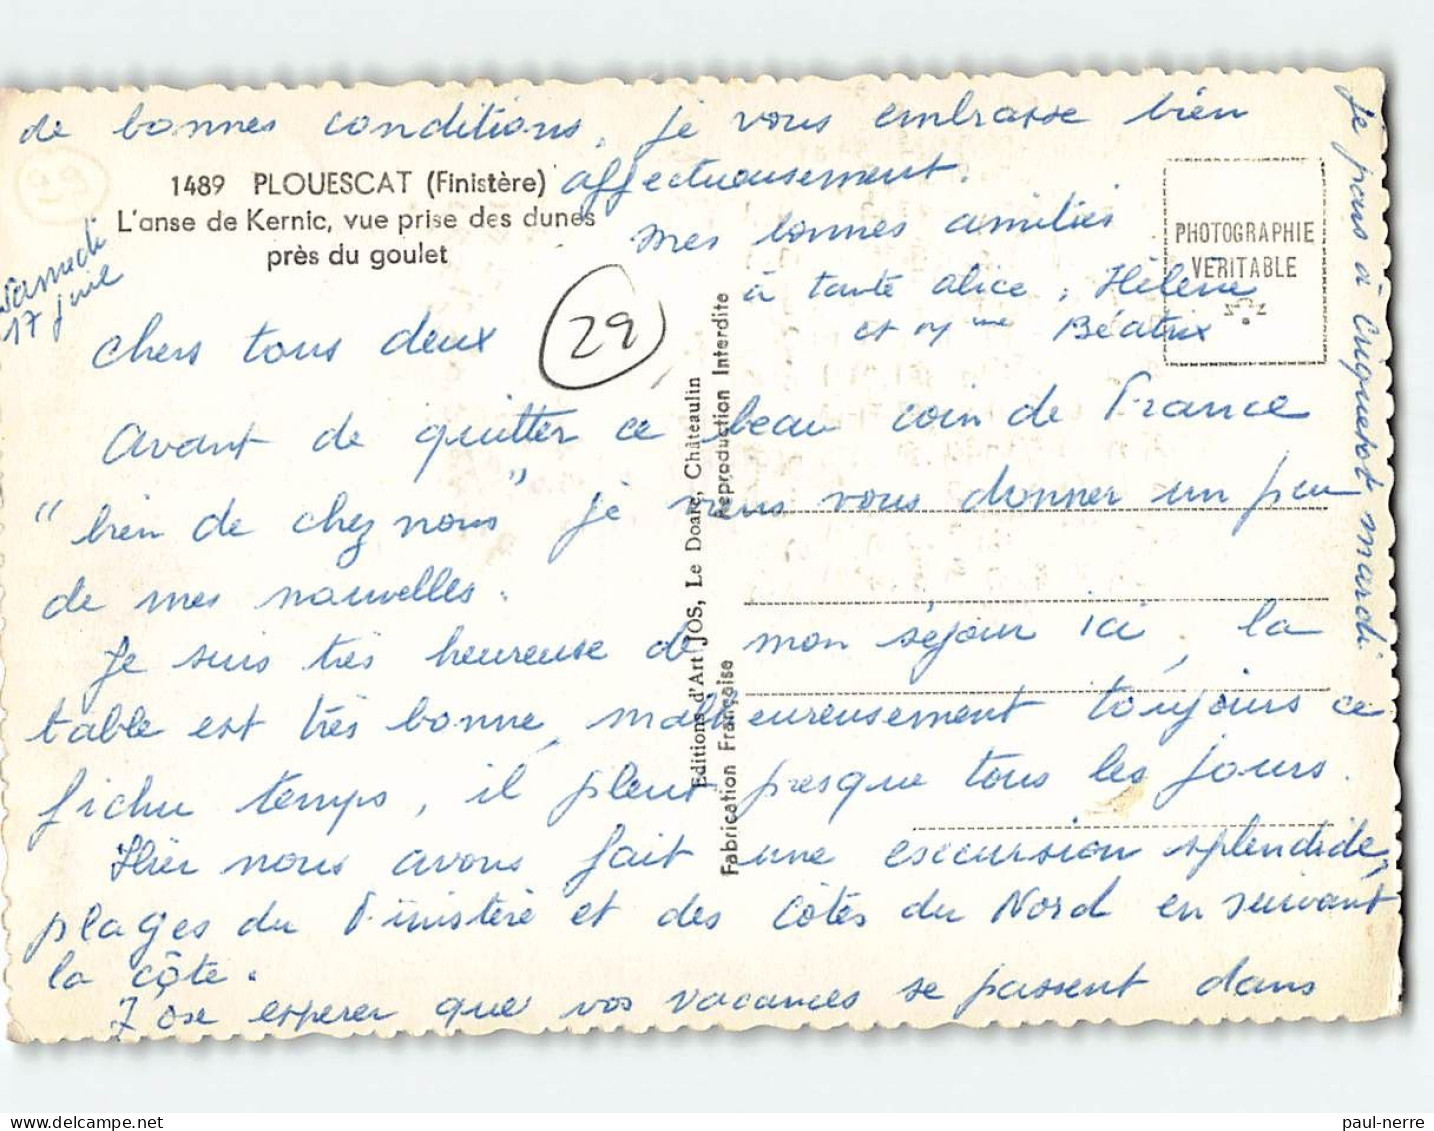 Samedi
17 juil
1489 PLOUESCAT (Finistère)
L'anse de Kernic, vue prise des dunes
près du goulet
29
chers tous deux
Avant de quitter ce beau coin de France
" bien de chez nous " je viens vous donner un peu
de mes nouvelles.
Je suis très heureuse de mon séjour ici, la
table est très bonne, malheureusement toujours ce
fichu temps, il pleut presque tous les jours.
Hier nous avons fait une excursion splendide,
plages du Finistère et des Côtes du Nord en suivant
la côte.
J'ose espérer que vos vacances se passent dans
de bonnes conditions, je vous embrasse bien
affectueusement.
mes bonnes amitiés
à tante alice, Hélène
et Mme Béatrix
Je pars à Criquetot mardi
PHOTOGRAPHIE
VERITABLE
Editions d'Art JOS, Le Doaré, Châteaulin
Fabrication Française Reproduction Interdite
paul-nerre